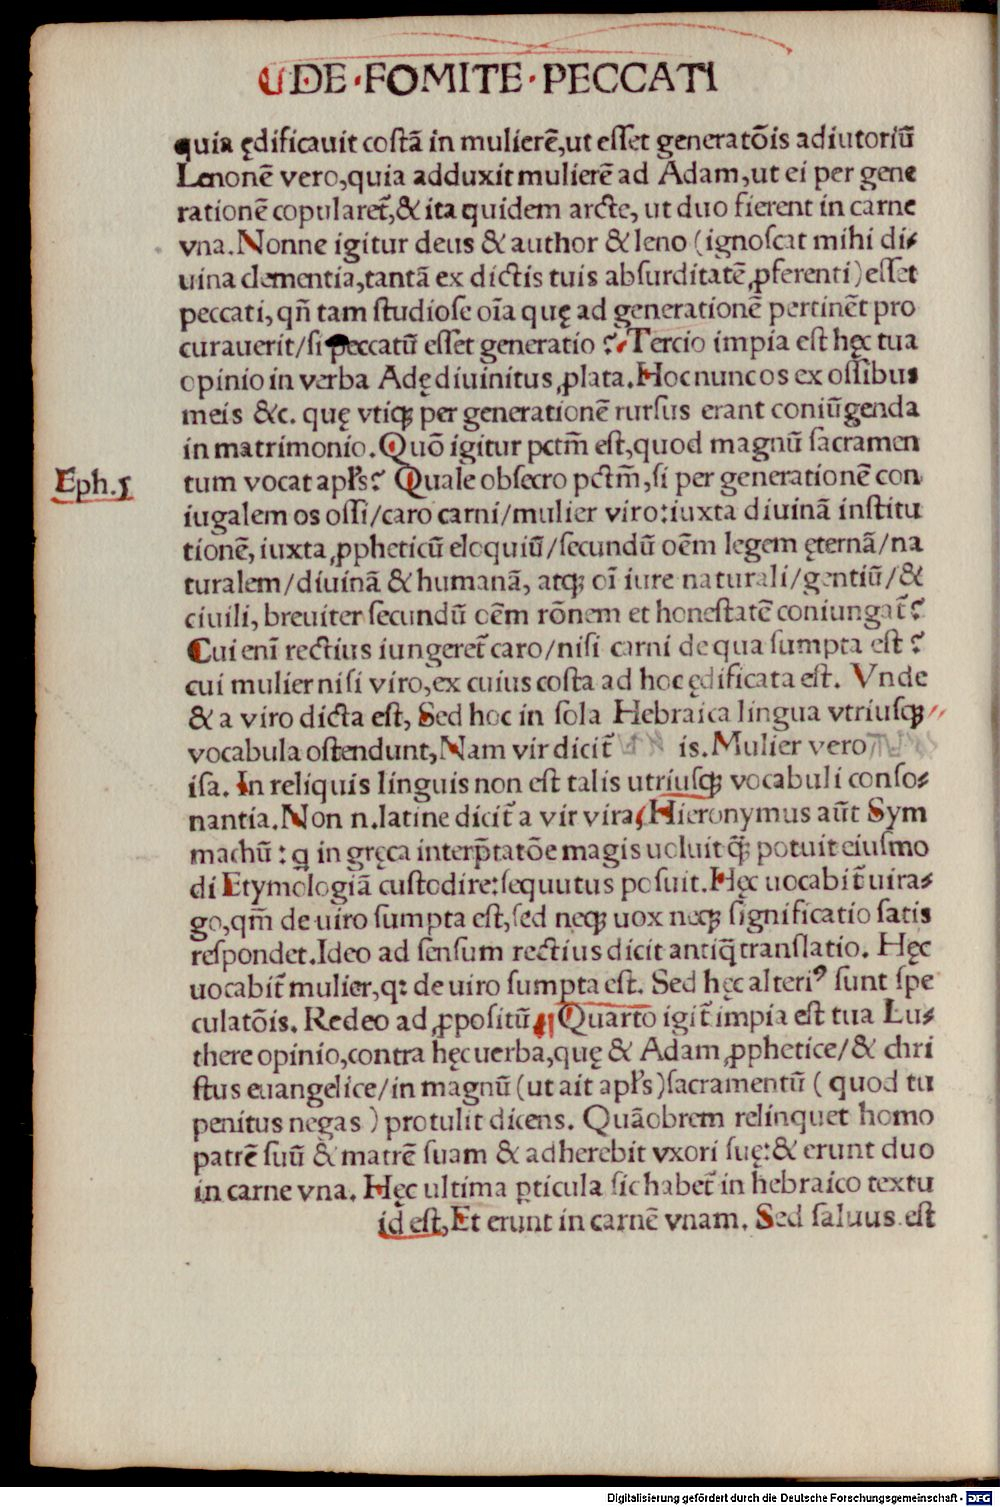 DE FOMITE PECCATI
quia ędificauit costā in mulierē,ut esset generatōis adiutoriū
Lenonē vero,quia adduxit mulierē ad Adam,ut ei per gene
rationē copularet̄,& ita quidem arcte, ut duo fierent in carne
vna.Nonne igitur deus & author & leno (ignoscat mihi di⸗
uina clementia,tantā ex dictis tuis absurditatē ꝓferenti)esset
peccati, qn̄ tam studiose oīa quę ad generationē pertinēt pro
curauerit/si peccatū esset generatio ? Tercio impia est hęc tua
opinio in verba Adę diuinitus ꝓlata.Hoc nunc os ex ossibus
meis &c. quę vtiqꝫ per generationē rursus erant coniūgenda
in matrimonio.Quō igitur pctm̄ est,quod magnū sacramen
Eph.5
tum vocat apl's? Quale obsecro pctm̄,si per generationē con
iugalem os ossi/caro carni/mulier viro:iuxta diuinā institu
tionē, iuxta ꝓpheticū eloquiū/secundū oēm legem ęternā/na
turalem/diuinā & humanā, atqꝫ oī iure naturali/gentiū/&
ciuili, breuiter secundū oēm rōnem et honestatē coniungat̄?
Cui enī rectius iungeret̄ caro/nisi carni de qua sumpta est ?
cui mulier nisi viro,ex cuius costa ad hoc ędificata est. Vnde
& a viro dicta est, Sed hoc in sola Hebraica lingua vtriusqꝫ
vocabula ostendunt,Nam vir dicit̄ is.Mulier vero
isa. In reliquis linguis non est talis utriusqꝫ vocabuli conso⸗
nantia.Non n.latine dicit̄ a vir vira Hieronymus aūt Sym
machū : q in gręca interp̄tatōe magis uoluit q̄ꝫ potuit eiusmo
di Etymologiā custodire:sequutus posuit.Hęc uocabit̄ uira⸗
go,qm̄ de uiro sumpta est,sed neqꝫ uox neqꝫ significatio satis
respondet.Ideo ad sensum rectius dicit antiq̄ translatio. Hęc
uocabit̄ mulier,qꝛ de uiro sumpta est. Sed hęc alteriꝰ sunt spe
culatōis. Redeo ad ꝓpositū Quarto igit̄ impia est tua Lu⸗
there opinio,contra hęc uerba,quę & Adam ꝓphetice/& chri
stus euangelice/in magnū (ut ait apl's)sacramentū ( quod tu
penitus negas ) protulit dicens. Quāobrem relinquet homo
patrē suū & matrē suam & adherebit vxori suę:& erunt duo
in carne vna. Hęc ultima ꝑticula sic habet̄ in hebraico textu
id est, Et erunt in carnē vnam. Sed saluus est
Digitalisierung gefördert durch die Deutsche Forschungsgemeinschaft - DFG